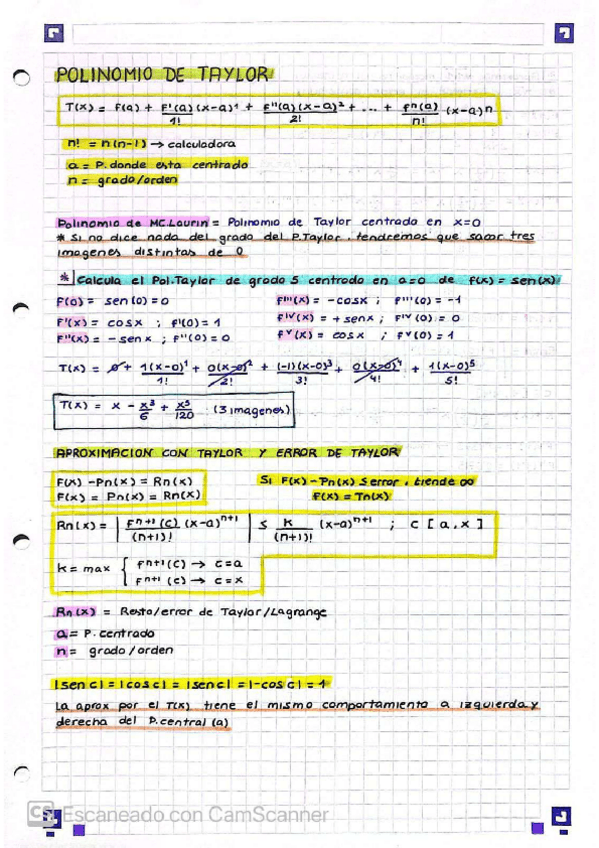 POLINOMIO DE TAYLOR
T(x) = f(a) + F'(a)(x-a)¹/1! + F''(a)(x-a)²/2! + ... + fⁿ(a)/n! (x-a)ⁿ
n! = n(n-1) → calculadora
a = P. donde esta centrado
n = grado/orden
Polinomio de MC.Laurin = Polinomio de Taylor centrado en x=0
* Si no dice nada del grado del P.Taylor, tendremos que sacar tres
imagenes distintas de 0
* Calcula el Pol.Taylor de grado 5 centrado en a=0 de f(x) = sen(x)
F(0) = sen(0) = 0 F'''(x) = -cosx ; F'''(0) = -1
F'(x) = cosx ; F'(0) = 1 F^IV(x) = +senx ; F^IV(0) = 0
F''(x) = -senx ; F''(0) = 0 F^V(x) = cosx ; F^V(0) = 1
T(x) = 0 + 1(x-0)¹/1! + 0(x-0)²/2! + (-1)(x-0)³/3! + 0(x-0)⁴/4! + 1(x-0)⁵/5!
T(x) = x - x³/6 + x⁵/120 (3 imagenes)
APROXIMACION CON TAYLOR Y ERROR DE TAYLOR
F(x) - Pn(x) = Rn(x) Si F(x) - Pn(x) ≤ error, tiende ∞
F(x) = Pn(x) = Rn(x) F(x) = Tn(x)
Rn(x) = | Fⁿ⁺¹(c)/(n+1)! (x-a)ⁿ⁺¹ | ≤ K/(n+1)! (x-a)ⁿ⁺¹ ; C [a,x]
K = max { Fⁿ⁺¹(c) → c=a
Fⁿ⁺¹(c) → c=x
Rn(x) = Resto/error de Taylor/Lagrange
a = P. centrado
n = grado/orden
|sen c| = |cos c| = |sen c| = |-cos c| = 1
La aprox por el T(x) tiene el mismo comportamiento a izquierda y
derecha del P.central (a)
CS Escaneado con CamScanner